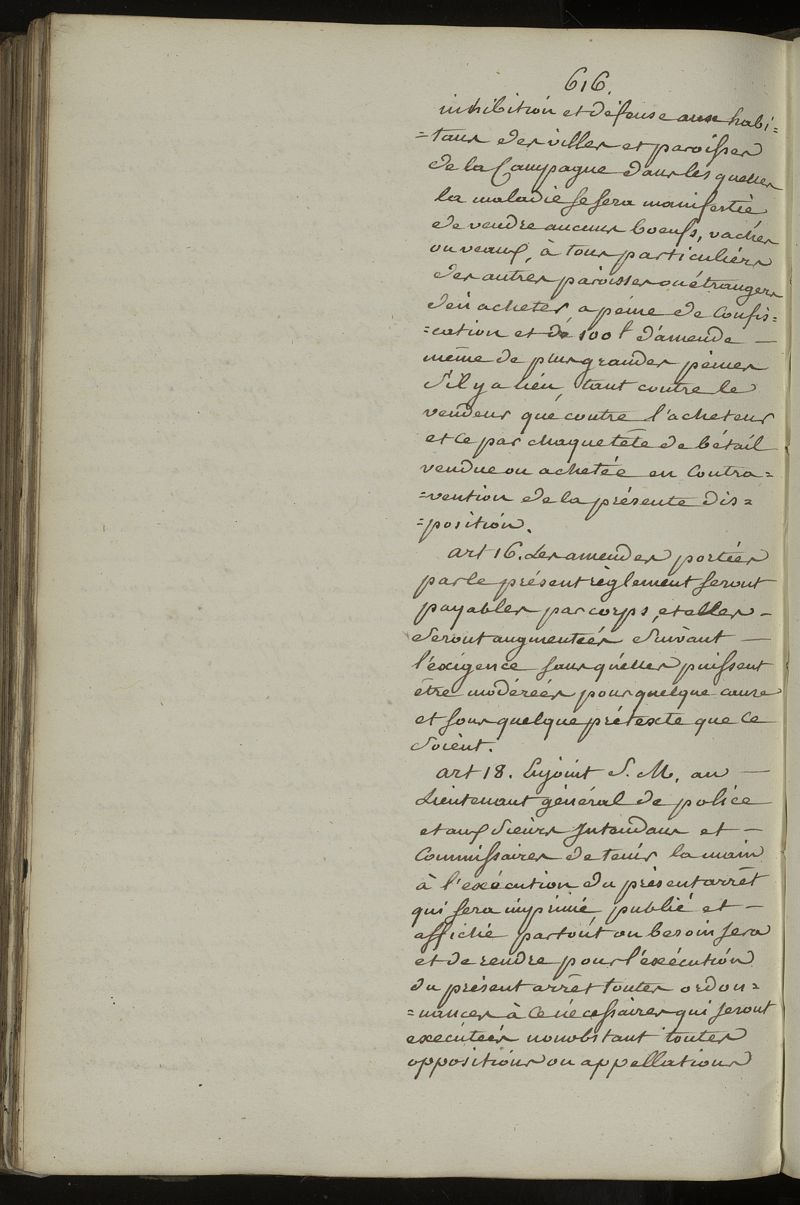 616.
inhibition et défense aux habi=
=tans des villes et paroisses
de la Campagne dans les quelles
la maladie se sera manifestée
de vendre aucuns boeufs, vaches
ou veaux, à tous particuliérs
des autres paroisses ou étrangers
d'en acheter, a peine de Confis=
=cation et de 100 l d'amende —
même de plus grandes peines
S'il y a lieu, tant contre le
vendeur que contre l'acheteur
et ce par chaque tête de bétail
vendue ou achetée en Contra=
=vention de la présente dis=
=position.
art 16. Les amendes portées
par le présent règlement seront
payables par corps, et elles —
Seront augmentées Suivant —
l'éxigence sans qu'elles puissent
être modérées pour quelque cause
et sous quelque prétexte que ce
Soient.
art 18. Enjoint S. M. au —
Lieutenant général de police
et aux Sieurs Intendans et —
Commissaires de tenir la main
à l'exécution du présent arrêt
qui sera imprimé publié et —
affiché partout ou besoin sera
et de rendre pour l'éxécution
du présent arrêt toutes ordon=
=nances à ce nécessaires qui seront
executées nonobstant toutes
oppositions ou appellations